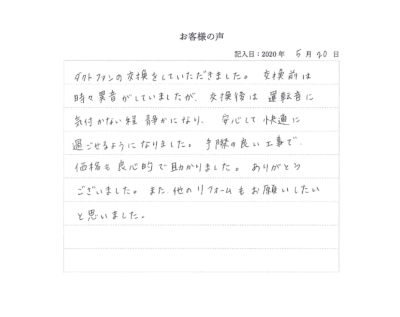 お客様の声
記入日：2020年 5月20日
ダクトファンの交換をしていただきました。交換前は
時々異音がしていましたが、交換後は運転音に
気付かない程静かになり、安心して快適に
過ごせるようになりました。手際の良い工事で、
価格も良心的で助かりました。ありがとう
ございました。また他のリフォームもお願いしたい
と思いました。